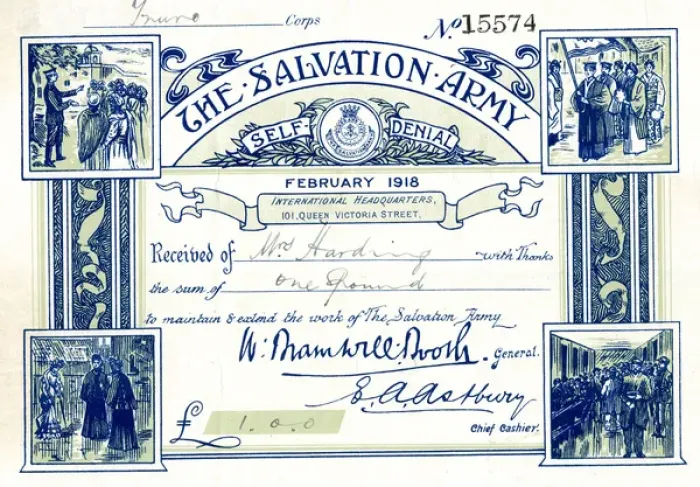 Truro Corps
No 15574
THE · SALVATION · ARMY
SELF- DENIAL
FEBRUARY 1918
INTERNATIONAL HEADQUARTERS,
101, QUEEN VICTORIA STREET,
Received of Mrs Harding with Thanks
the sum of One Pound
to maintain & extend the work of The Salvation Army
W. Bramwell Booth. General.
E. A. Astbury
Chief Cashier.
£ 1. 0. 0